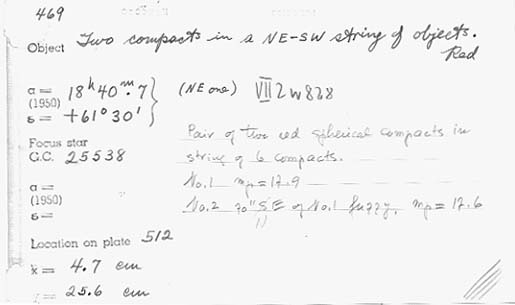 469
Object Two compacts in a NE-SW string of objects.
Red
α = 18h 40m.7 (NE one) VII Zw 828
(1950)
δ = +61°30'
Pair of two red spherical compacts in
Focus star
G.C. 25538 string of 6 compacts.
No.1 mp = 17.9
α =
(1950) No.2 70" SE of No.1 fuzzy, mp = 17.6
δ =
Location on plate 512
x = 4.7 cm
= 25.6 cm